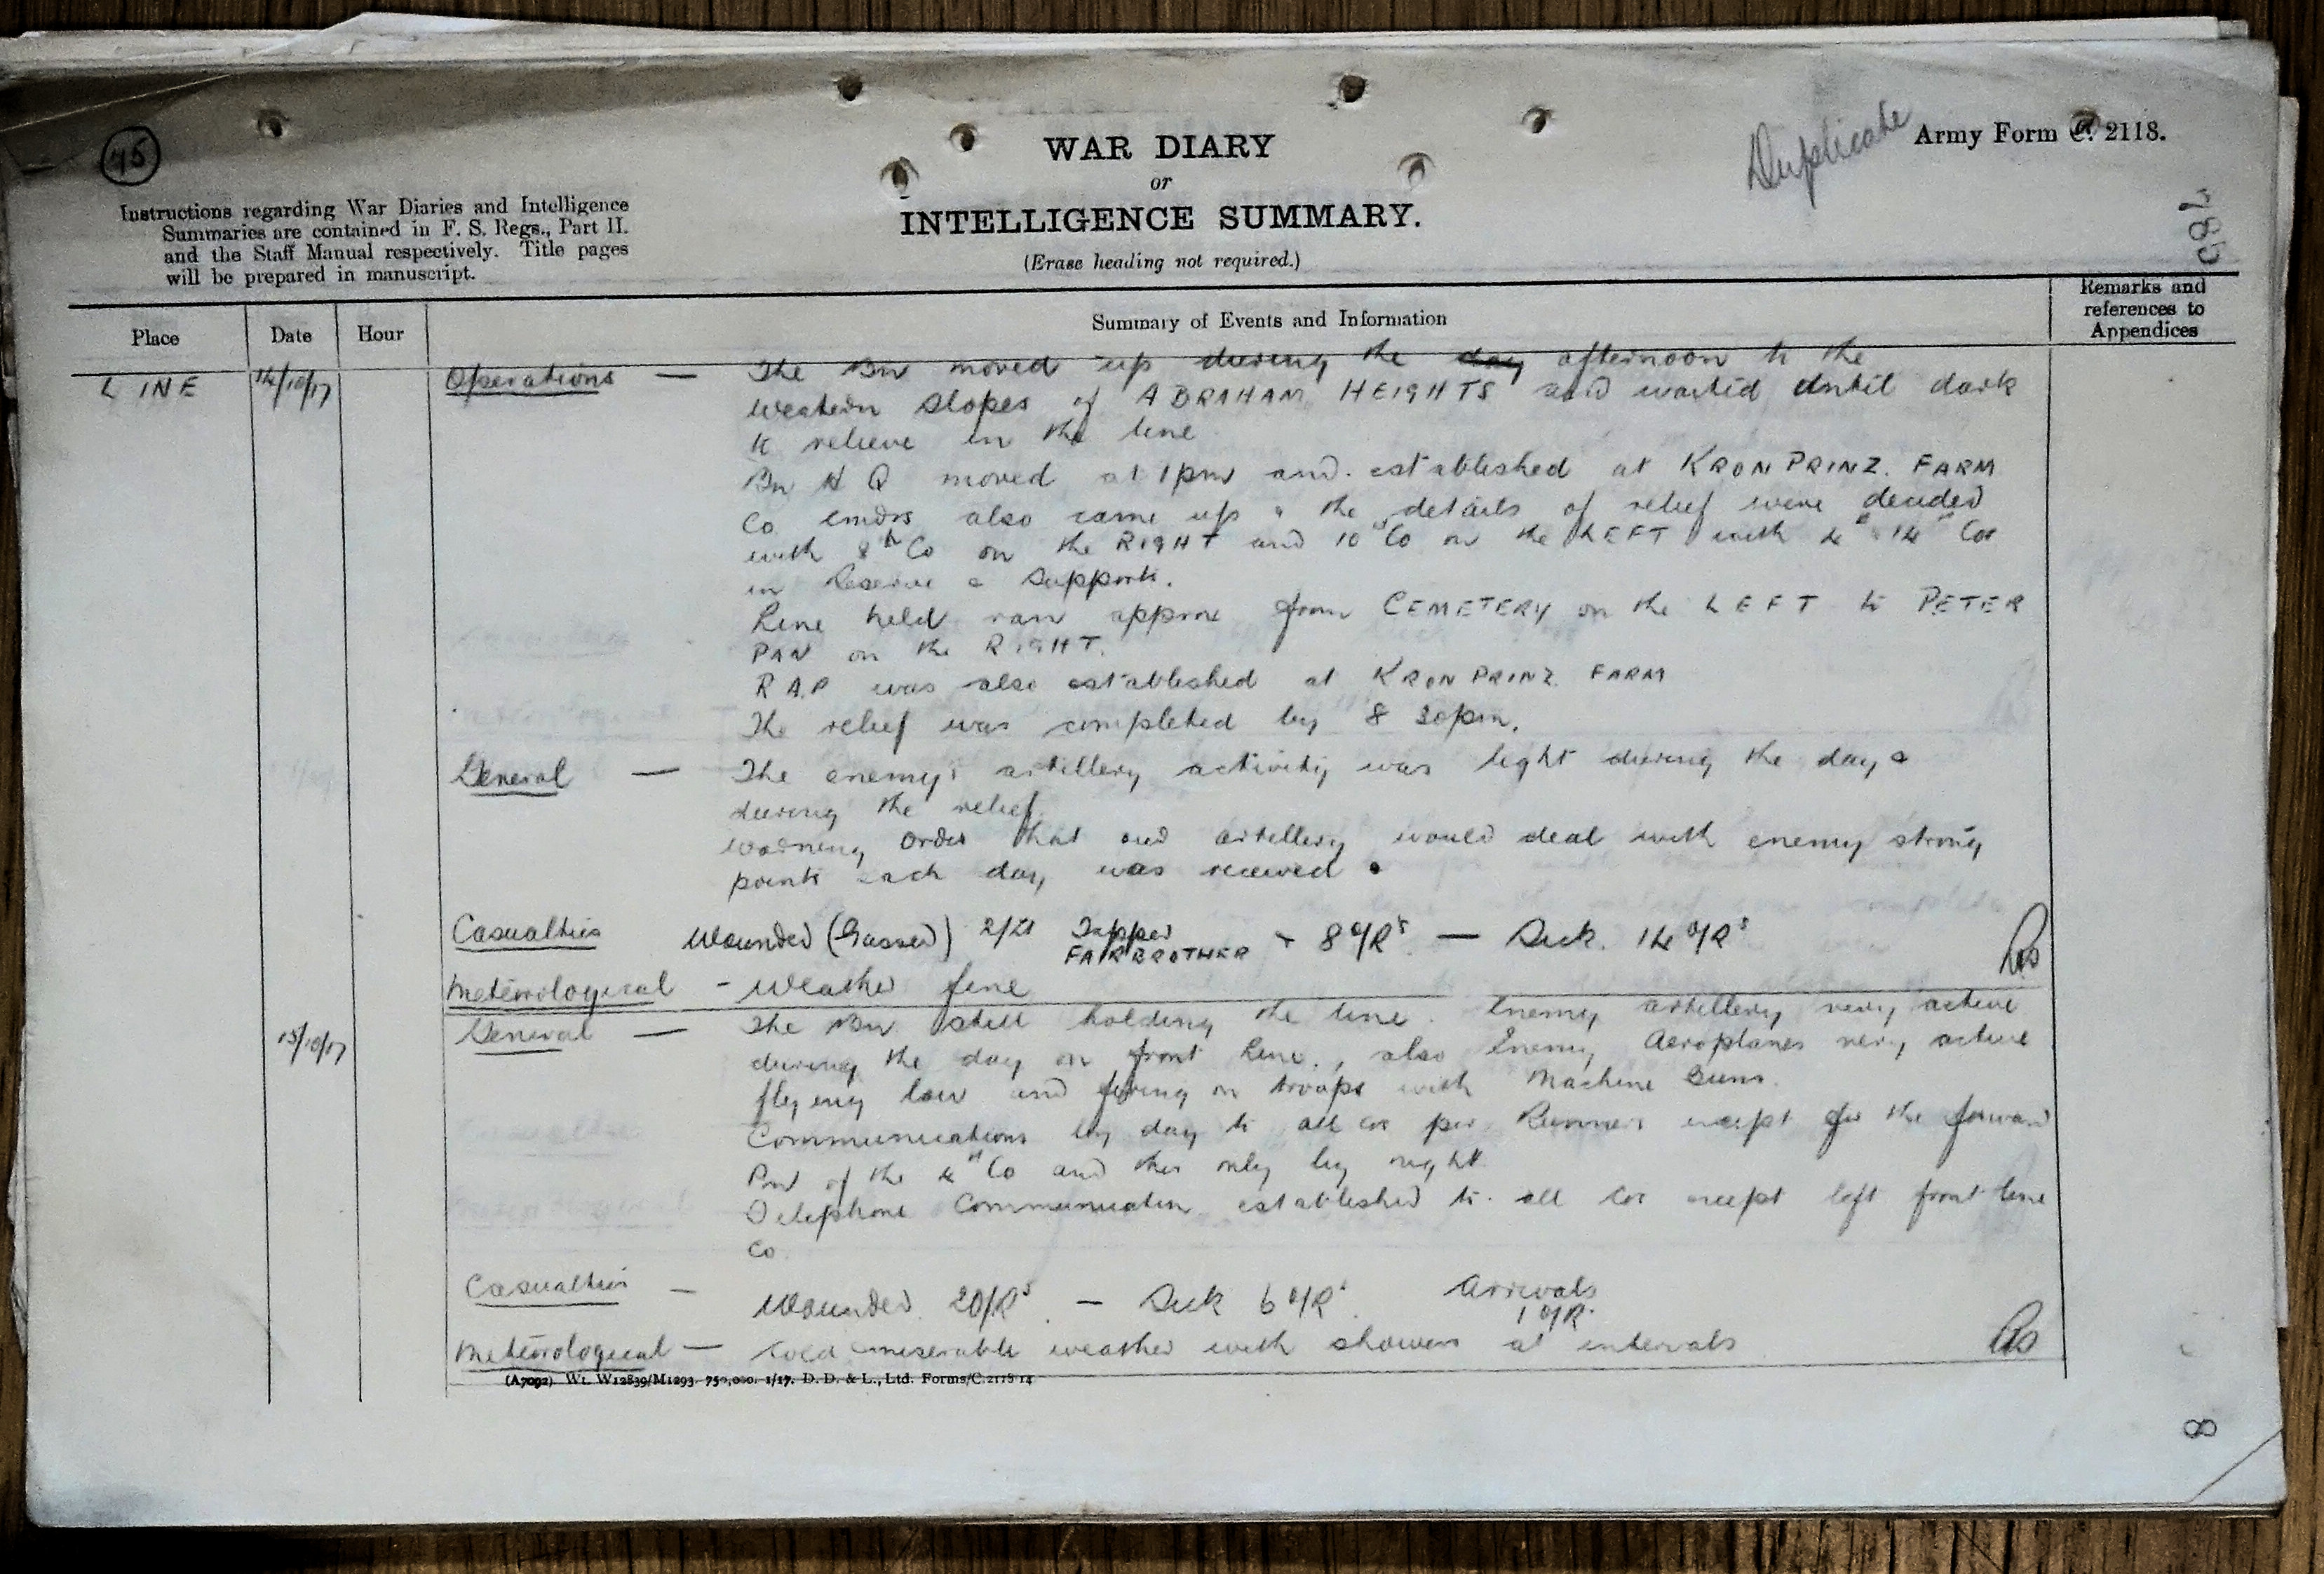 45
Duplicate
Army Form C. 2118.
WAR DIARY
or
INTELLIGENCE SUMMARY.
(Erase heading not required.)
Instructions regarding War Diaries and Intelligence
Summaries are contained in F. S. Regs., Part II.
and the Staff Manual respectively. Title pages
will be prepared in manuscript.
Place
Date
Hour
Summary of Events and Information
Remarks and
references to
Appendices
LINE 14/10/17 Operations — The Bn moved up during the day afternoon to the
western slopes of ABRAHAM HEIGHTS and waited until dark
to relieve in the line
Bn H Q moved at 1pm and established at KRON PRINZ. FARM
Co cmdrs also came up & the details of relief were decided
with 8th Co on the RIGHT and 10th Co on the LEFT with 4th & 14th Cos
in Reserve & Support.
Line held ran approx from CEMETERY on the LEFT to PETER
PAN on the RIGHT.
R A.P was also established at KRON PRINZ. FARM
The relief was completed by 8 30pm.
General — The enemy's artillery activity was light during the day &
during the relief.
Warning order that our artillery would deal with enemy strong
points each day was received.
Casualties Wounded (Gassed) 2/Lt Tapper
FAIRBROTHER + 8 O/Rs — Sick. 14 O/Rs
Meteorological - Weather fine
15/10/17 General — The Bn still holding the line. Enemy artillery very active
during the day on front line, also Enemy Aeroplanes very active
flying low and firing on troops with Machine Guns.
Communications by day to all cos per Runners except for the forward
Pn of the 4th Co and this only by night.
Telephone Communication established to all Cos except left front line
Co.
Casualties — Wounded 2O/Rs — Sick 6 O/Rs Arrivals
1 O/R.
Meteorological — Cold miserable weather with showers at intervals
(A7092) Wt. W12839/M1293 750,000. 1/17. D. D. & L., Ltd. Forms/C.2118/14
8